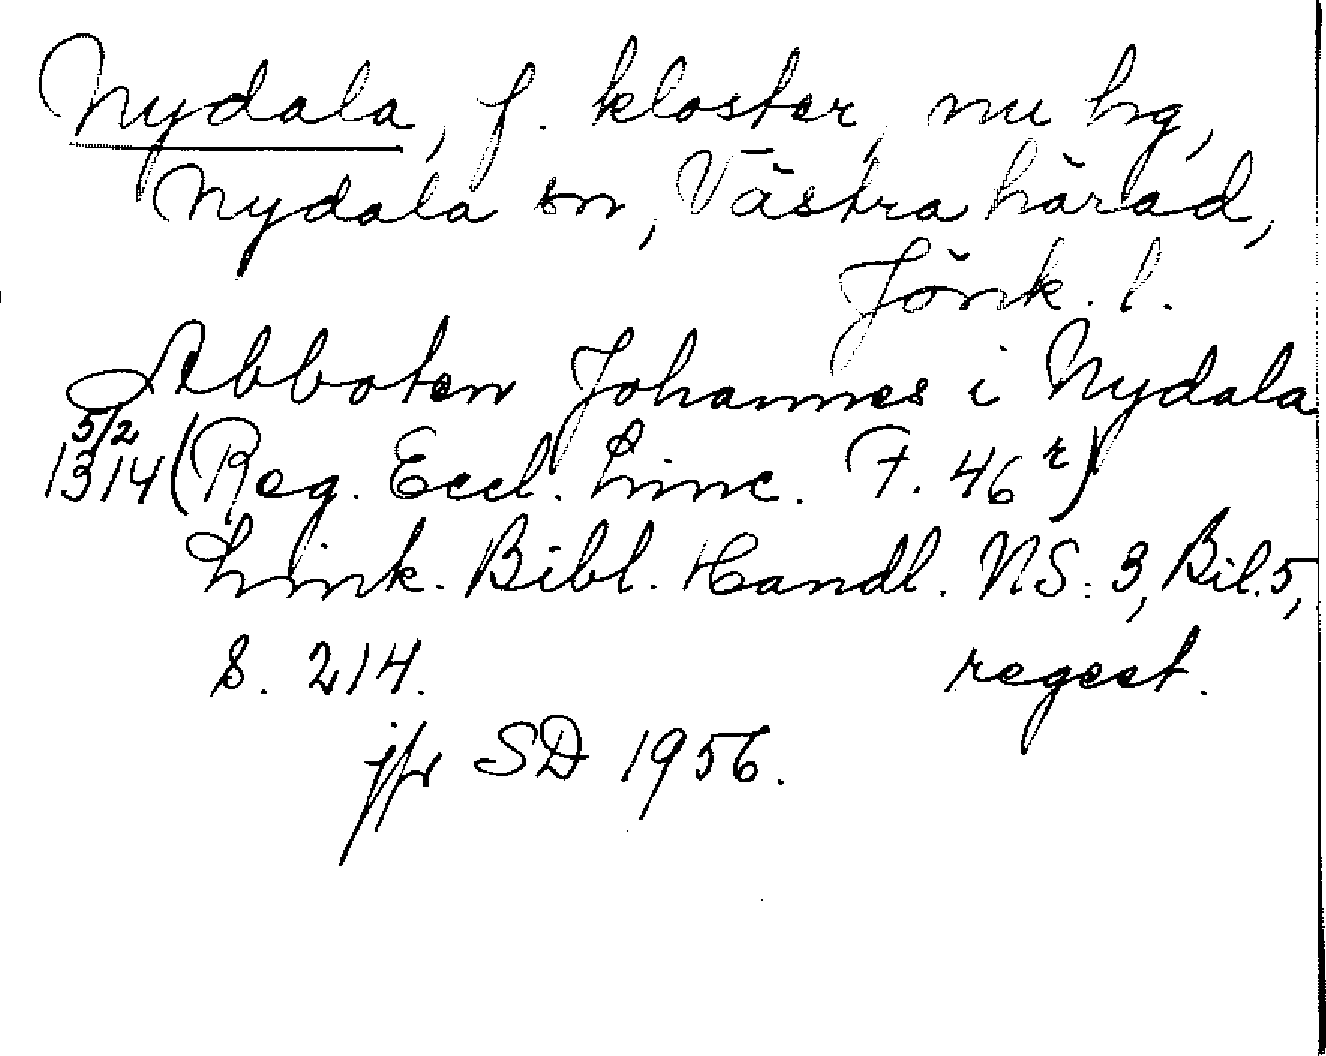 Nydala, f. kloster, nu hg,
Nydala sn, Västra härad,
Jönk. l.
Abboten Johannes i Nydala
5/2
1314 (Reg. Eccl. Linc. F. 46 r)
Link. Bibl. Handl. NS: 3, Bil. 5,
S. 214. regest.
jfr SD 1956.